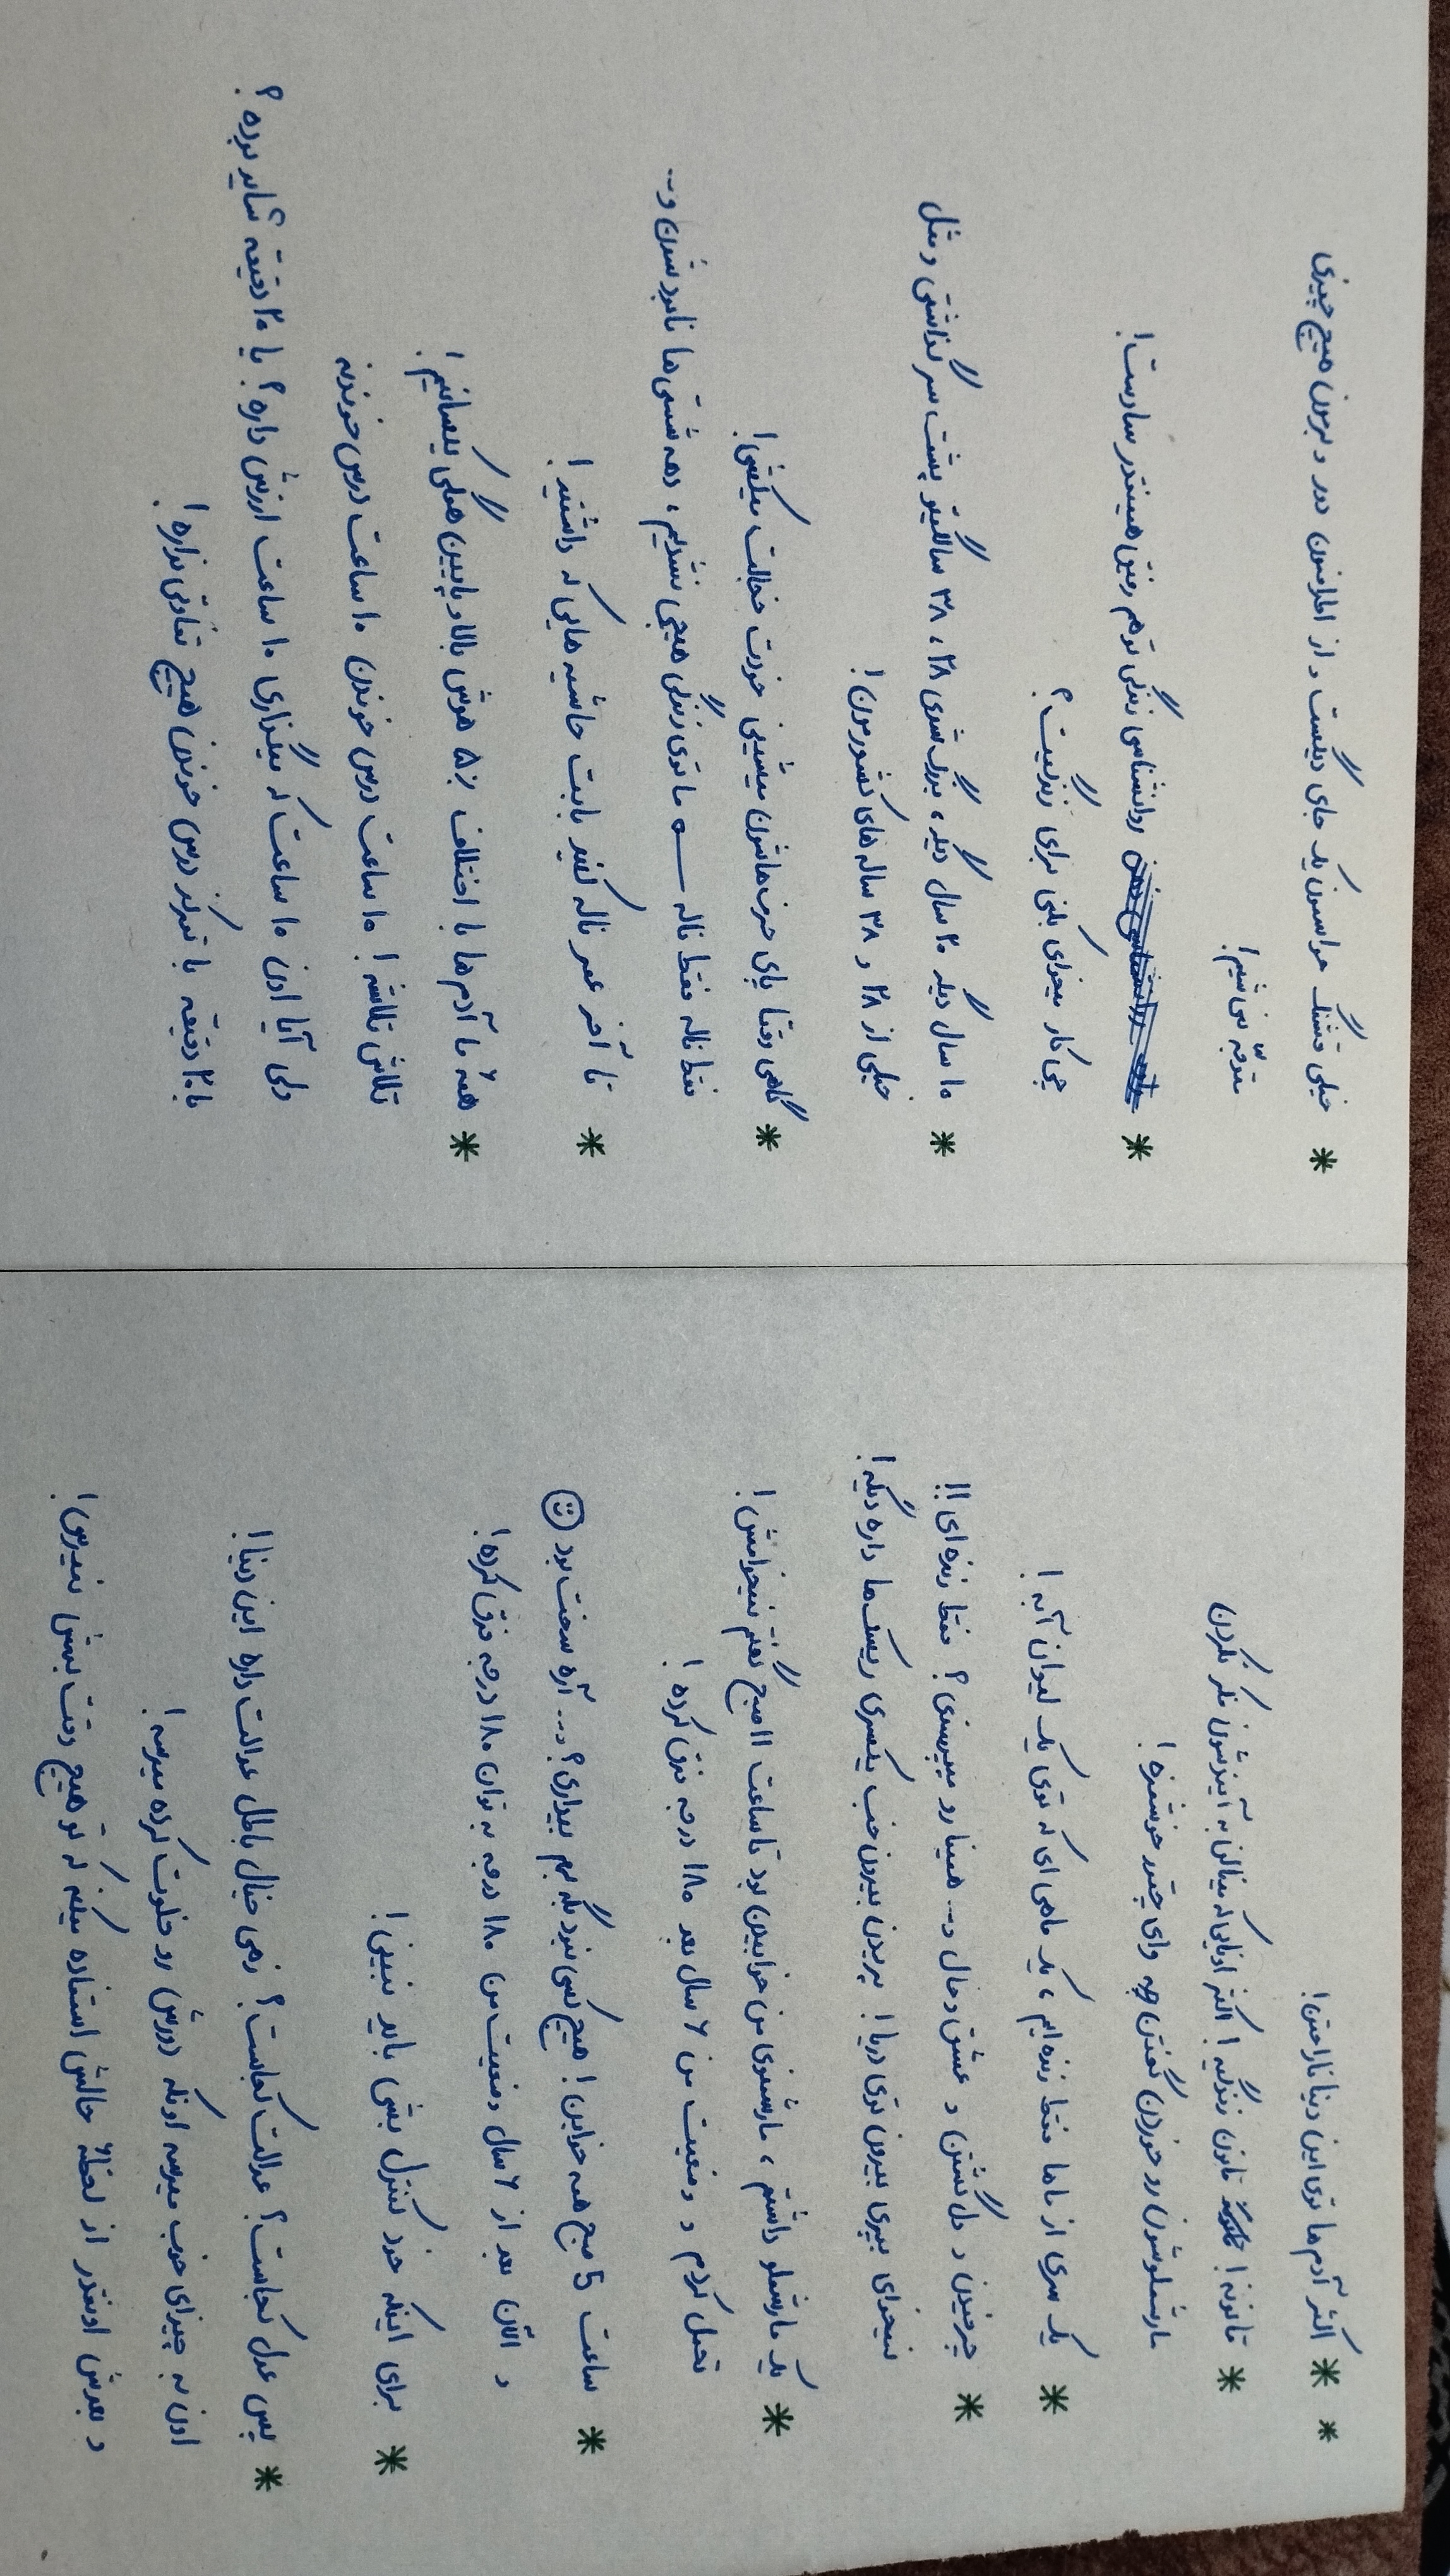 * * اکثر آدم ها توی این دنیا ناراحتن!
* قانونه! قانون زندگیه! اکثر اونایی که مینالن به آیندشون فکر نکردن
مارشملوشون رو خوردن گفتن وای چقدر خوشمزه!
* یک سری از ماها فقط زنده ایم، یک ماهی ای که توی یک لیوان آبه!
* چرخیدن و ول گشتن و عشق و حال و... همینا رو میپسندی؟ فقط زنده ای!!
نمیخوای بپری بیرون توی دریا! پریدن بیرون خب یکسری ریسک ها داره دیگه!
* یک مارشملو داشتم، مارشملوی من خوابیدن بود تا ساعت ۱۱ صبح گفتم نمیخوامش!
تحمل کردم و وضعیت من ۶ سال بعد ۱۸۰ درجه فرق کرده!
* ساعت 5 صبح همه خوابن! هیچ کسی نبود بگه بهم بیداری؟ و... آره سخت بود ☺
و الآن بعد از ۶ سال وضعیت من ۱۸۰ درجه به توان ۱۸۰ درجه فرق کرده!
* برای اینکه خود کنترل بشی باید نبینی!
* پس عدل کجاست؟ عدالت کجاست؟ زهی خیال باطل عدالت داره این دنیا!
اون به چیزای خوب میرسه اونکه دورش رو خلوت کرده میرسه!
و بعدش اونقدر از لحظهٔ حالش استفاده میکنه که تو هیچ وقت بهش نمیرسی!
* خیلی قشنگ حواسمون یک جای دیگست و از اطرافمون دور و برمون هیچ چیزی
متوجّه نمی شیم!
* روانشناسی زندگی تو هم رفیق همینقدر سادست!
چی کار میخوای بکنی برای زندگیت؟
* ۱۰ سال دیگه ۲۰ سال دیگه، بزرگ شدی ۲۸، ۳۸ سالگیتو پشت سر گذاشتی و مثل
خیلی از ۲۸ و ۳۸ ساله های کشورمون!
* گاهی وقتا پای حرف هاشون میشینی خودت خجالت میکشی!
فقط ناله فقط ناله ما توی زندگی هیچی نشدیم، دهه شستی ها نابود شدن و...
* تا آخر عمر ناله کنید بابت حاشیه هایی که داشتید!
* همهٔ ما آدم ها با اختلاف ۵٪ هوش بالا و پایین همگی یکسانیم!
تلاش تلاشه! ۱۰ ساعت درس خوندن ۱۰ ساعت درس خوندنه
ولی آیا اون ۱۰ ساعت که میگذاری ۱۰ ساعت ارزش داره؟ یا ۲۰ دقیقه شاید بوده؟
با ۲۰ دقیقه با تمرکز درس خوندن هیچ تفاوتی نداره!